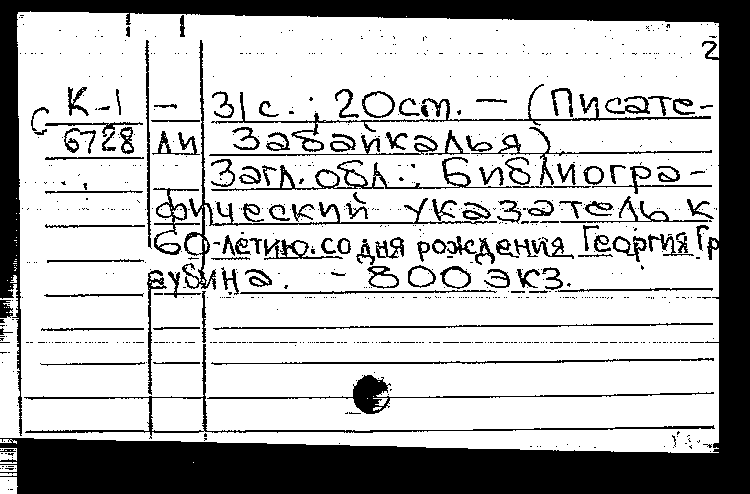 2
С К-1 - 31 с. ; 20 cm. — (Писате-
6728 ли Забайкалья)
Загл. обл.: Библиогра-
фический указатель к
60-летию со дня рождения Георгия Гр
аубина. - 800 экз.